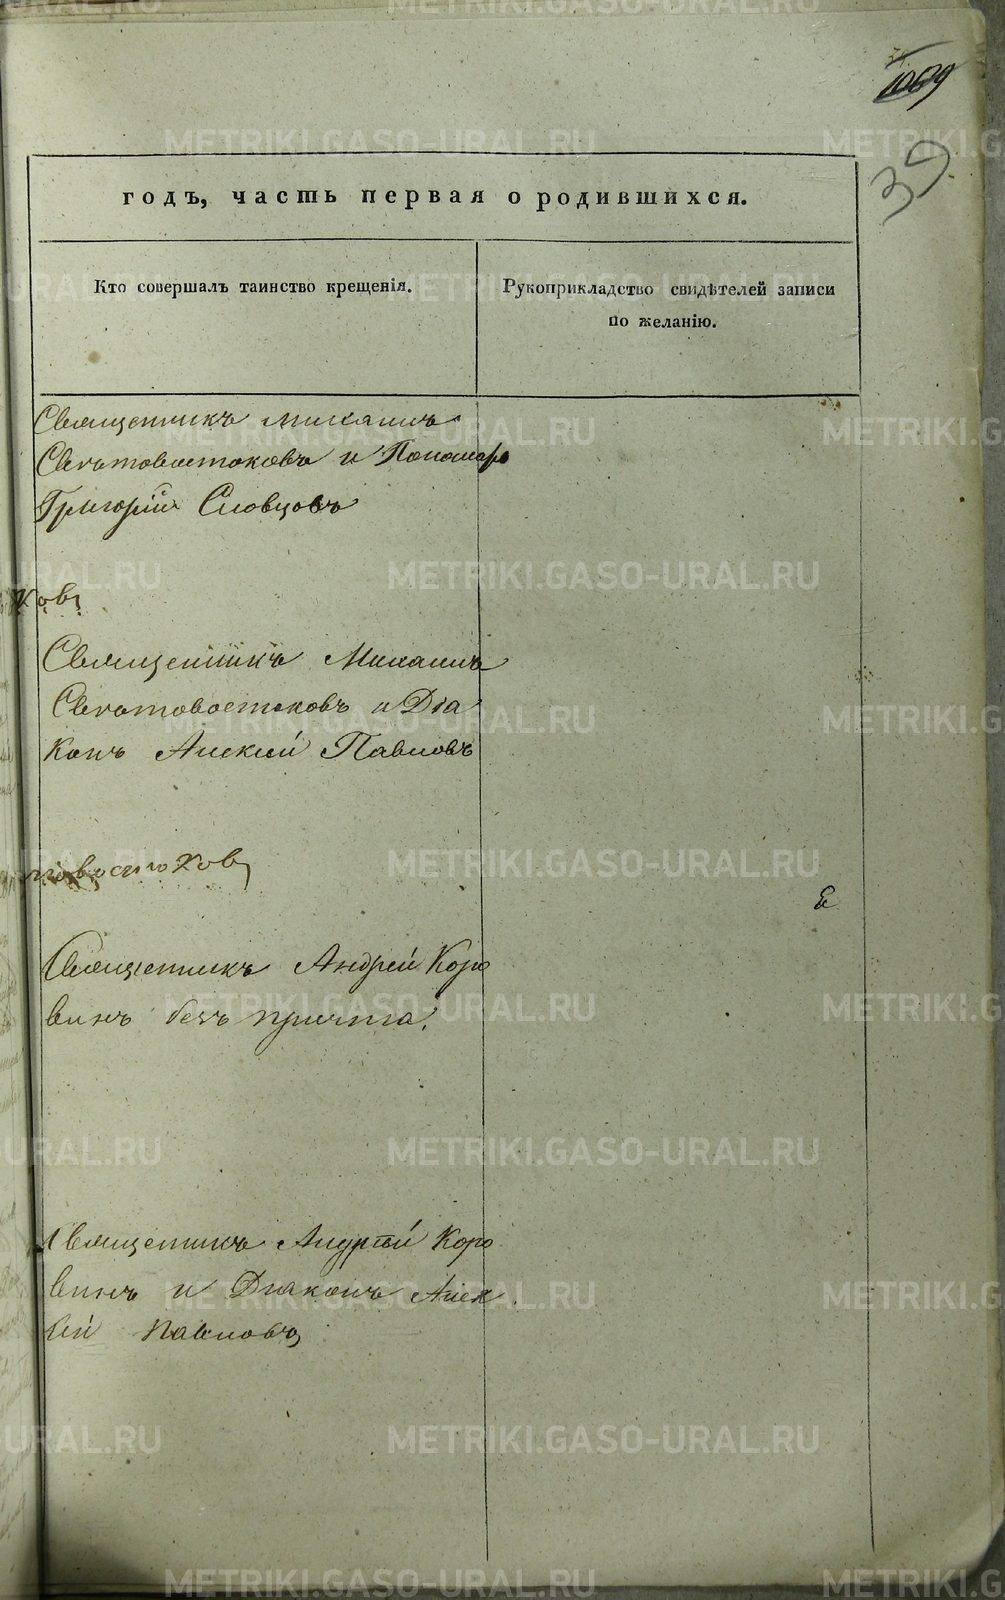 39
годъ, часть первая о родившихся.
Кто совершалъ таинство крещенія.
Рукоприкладство свидѣтелей записи
по желанію.
Священникъ Михаилъ
Святовостоковъ и Пономарь
Григорій Словцовъ
ковъ
Священникъ Михаилъ
Святовостоковъ и Діа
конъ Алексѣй Павловъ
товостоковъ
Священникъ Андрей Коро
винъ безъ причта.
Священникъ Андрей Коро
винъ и Діаконъ Алек
сѣй Павловъ
METRIKI.GASO-URAL.RU